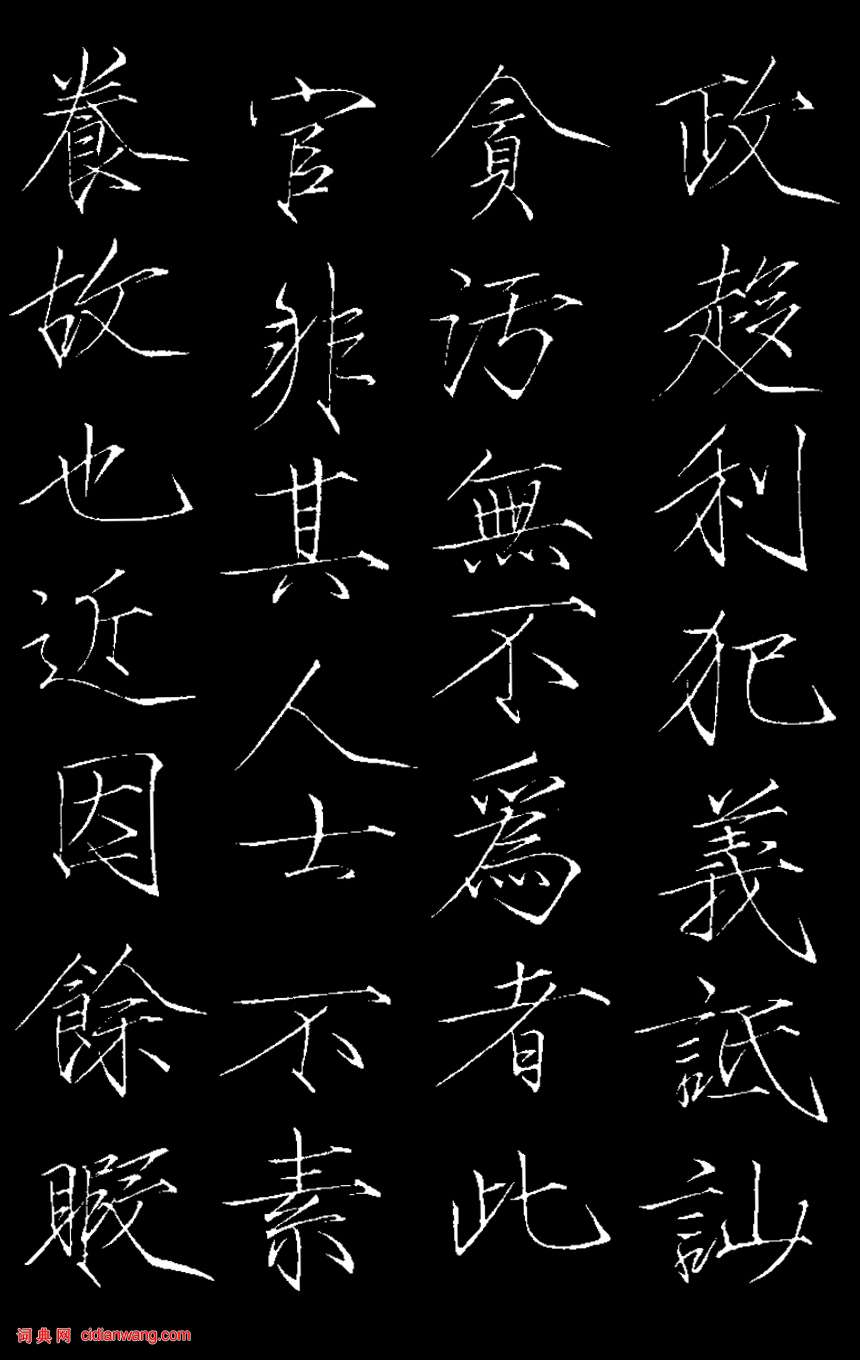 政趍利犯義詆訕
貪汚無不爲者此
官非其人士不素
養故也近因餘暇
词典网 cidianwang.com